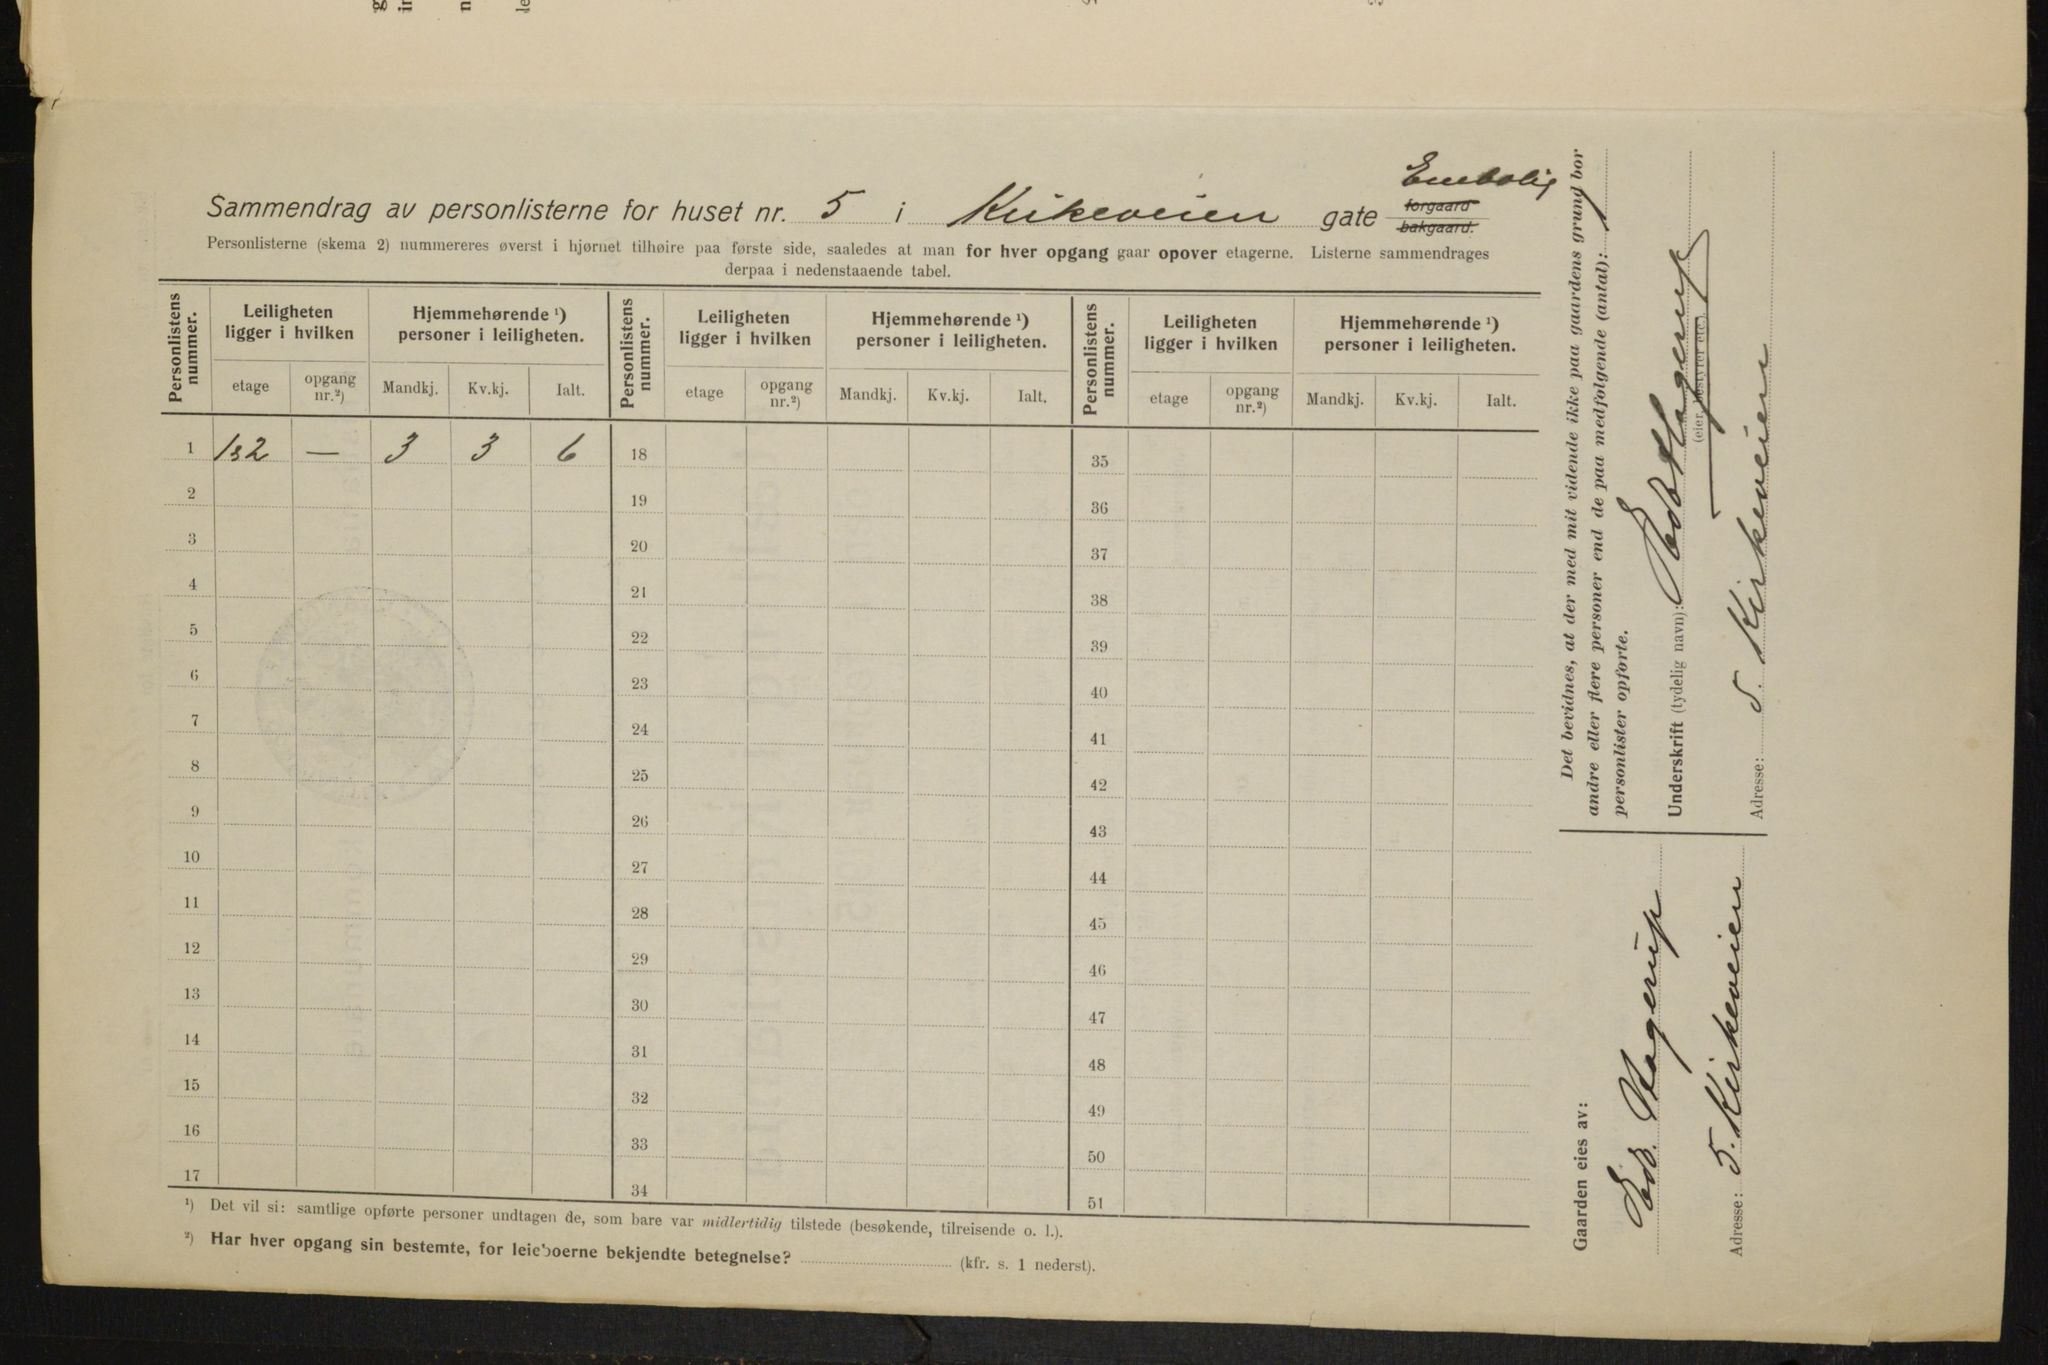 Enebolig
Sammendrag av personlisterne for huset nr. 5 i Kirkeveien gate forgaard bakgaard.
Personlisterne (skema 2) nummereres øverst i hjørnet tilhøire paa første side, saaledes at man for hver opgang gaar opover etagerne. Listerne sammendrages
derpaa i nedenstaaende tabel.
Personlistens nummer. Leiligheten ligger i hvilken Hjemmehørende ¹) personer i leiligheten. Personlistens nummer. Leiligheten ligger i hvilken Hjemmehørende ¹) personer i leiligheten. Personlistens nummer. Leiligheten ligger i hvilken Hjemmehørende ¹) personer i leiligheten.
etage opgang nr.²) Mandkj. Kv.kj. Ialt. etage opgang nr.²) Mandkj. Kv.kj. Ialt. etage opgang nr.²) Mandkj. Kv.kj. Ialt.
1 1&2 — 3 3 6 18 35
2 19 36
3 20 37
4 21 38
5 22 39
6 23 40
7 24 41
8 25 42
9 26 43
10 27 44
11 28 45
12 29 46
13 30 47
14 31 48
15 32 49
16 33 50
17 34 51
¹) Det vil si: samtlige opførte personer undtagen de, som bare var midlertidig tilstede (besøkende, tilreisende o. l.).
²) Har hver opgang sin bestemte, for leieboerne bekjendte betegnelse? (kfr. s. 1 nederst).
Det bevidnes, at der med mit vidende ikke paa gaardens grund bor
andre eller flere personer end de paa medfølgende (antal): 1
personlister opførte.
Underskrift (tydelig navn): Edv Hagerup
(eier, bestyrer etc.)
Adresse: 5. Kirkeveien
Gaarden eies av:
Edv. Hagerup
Adresse: 5. Kirkeveien